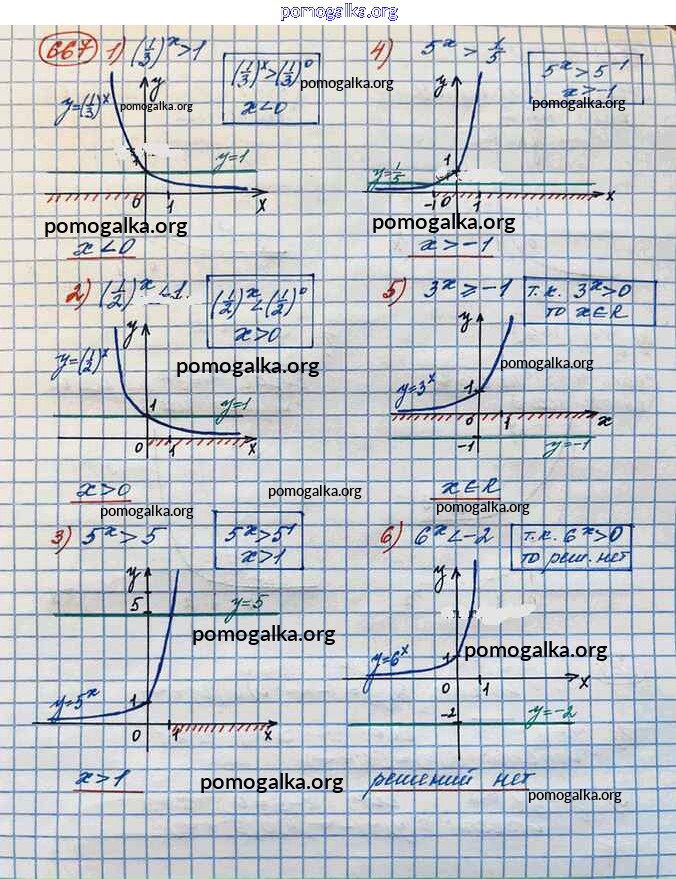 pomogalka.org
667 1) (1/3)^x > 1
(1/3)^x > (1/3)^0
x < 0
y
y = (1/3)^x
pomogalka.org
pomogalka.org
y = 1
0 1 x
pomogalka.org
x < 0
4) 5^x > 1/5
5^x > 5^-1
x > -1
y
pomogalka.org
1
y = 1/5
-1 0 1 x
pomogalka.org
x > -1
2) (1/2)^x < 1.
(1/2)^x < (1/2)^0
x > 0
y
y = (1/2)^x
pomogalka.org
1
y = 1
0 1 x
x > 0
pomogalka.org
pomogalka.org
5) 3^x ≥ -1
т.к. 3^x > 0
то x ∈ R
y
pomogalka.org
y = 3^x
1
0 1 x
-1
y = -1
x ∈ R
pomogalka.org
3) 5^x > 5
5^x > 5^1
x > 1
y
5
y = 5
pomogalka.org
y = 5^x
1
0 1 x
x > 1
pomogalka.org
6) 6^x < -2
т.к. 6^x > 0
то реш. нет
y
pomogalka.org
y = 6^x
1
0 1 x
-2
y = -2
решений нет
pomogalka.org